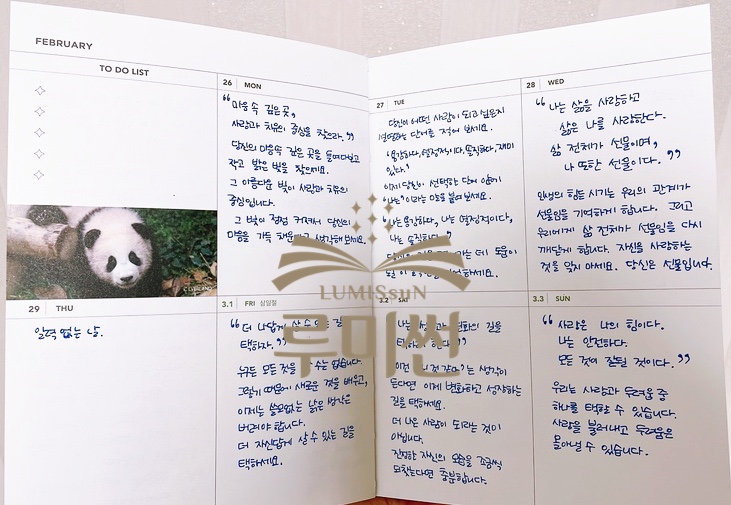 FEBRUARY
TO DO LIST
© EVERLAND
26 MON
“마음 속 깊은 곳,
사랑과 치유의 중심을 찾으라.”
당신의 마음속 깊은 곳을 들여다보고
작고 밝은 빛을 찾으세요.
그 아름다운 빛이 사랑과 치유의
중심입니다.
그 빛이 점점 커져서 당신의
마음을 가득 채운다고 생각해보세요.
27 TUE
당신이 어떤 사람이 되고 싶은지
설명하는 단어를 적어 보세요.
“용감하다, 열정적이다, 솔직하다, 재미
있다.”
이제 당신이 선택한 단어 앞에
“나는”이라는 말을 붙여보세요.
“나는 용감하다, 나는 열정적이다,
나는 솔직하다.”
는 데 도움이
하세요.
28 WED
“나는 삶을 사랑하고
삶은 나를 사랑한다.
삶 전체가 선물이며,
나 또한 선물이다.”
인생의 힘든 시기는 우리의 관계가
선물임을 기억하게 합니다. 그리고
우리에게 삶 전체가 선물임을 다시
깨닫게 합니다. 자신을 사랑하는
것을 잊지 마세요. 당신은 선물입니다.
LUMISsuN
루미썬
29 THU
일력 없는 날.
3.1 FRI 삼일절
“더 나답게 살 수 있는 길
택하자.”
누구든 모든 것을 수는 없습니다.
그렇기 때문에 새로운 것을 배우고,
이제는 쓸모없는 낡은 생각은
버려야 합니다.
더 자신답게 살 수 있는 길을
택하세요.
3.2 SAT
나는 변화의 길을
택하 한다.”
이런 것 같아’는 생각이
든다면 이제 변화하고 성장하는
길을 택하세요.
더 나은 사람이 되라는 것이
아닙니다.
진정한 자신의 모습을 조금씩
되찾는다면 충분합니다.
3.3 SUN
“사랑은 나의 힘이다.
나는 안전하다.
모든 것이 잘될 것이다.”
우리는 사랑과 두려움 중
하나를 택할 수 있습니다.
사랑을 불러내고 두려움은
몰아낼 수 있습니다.